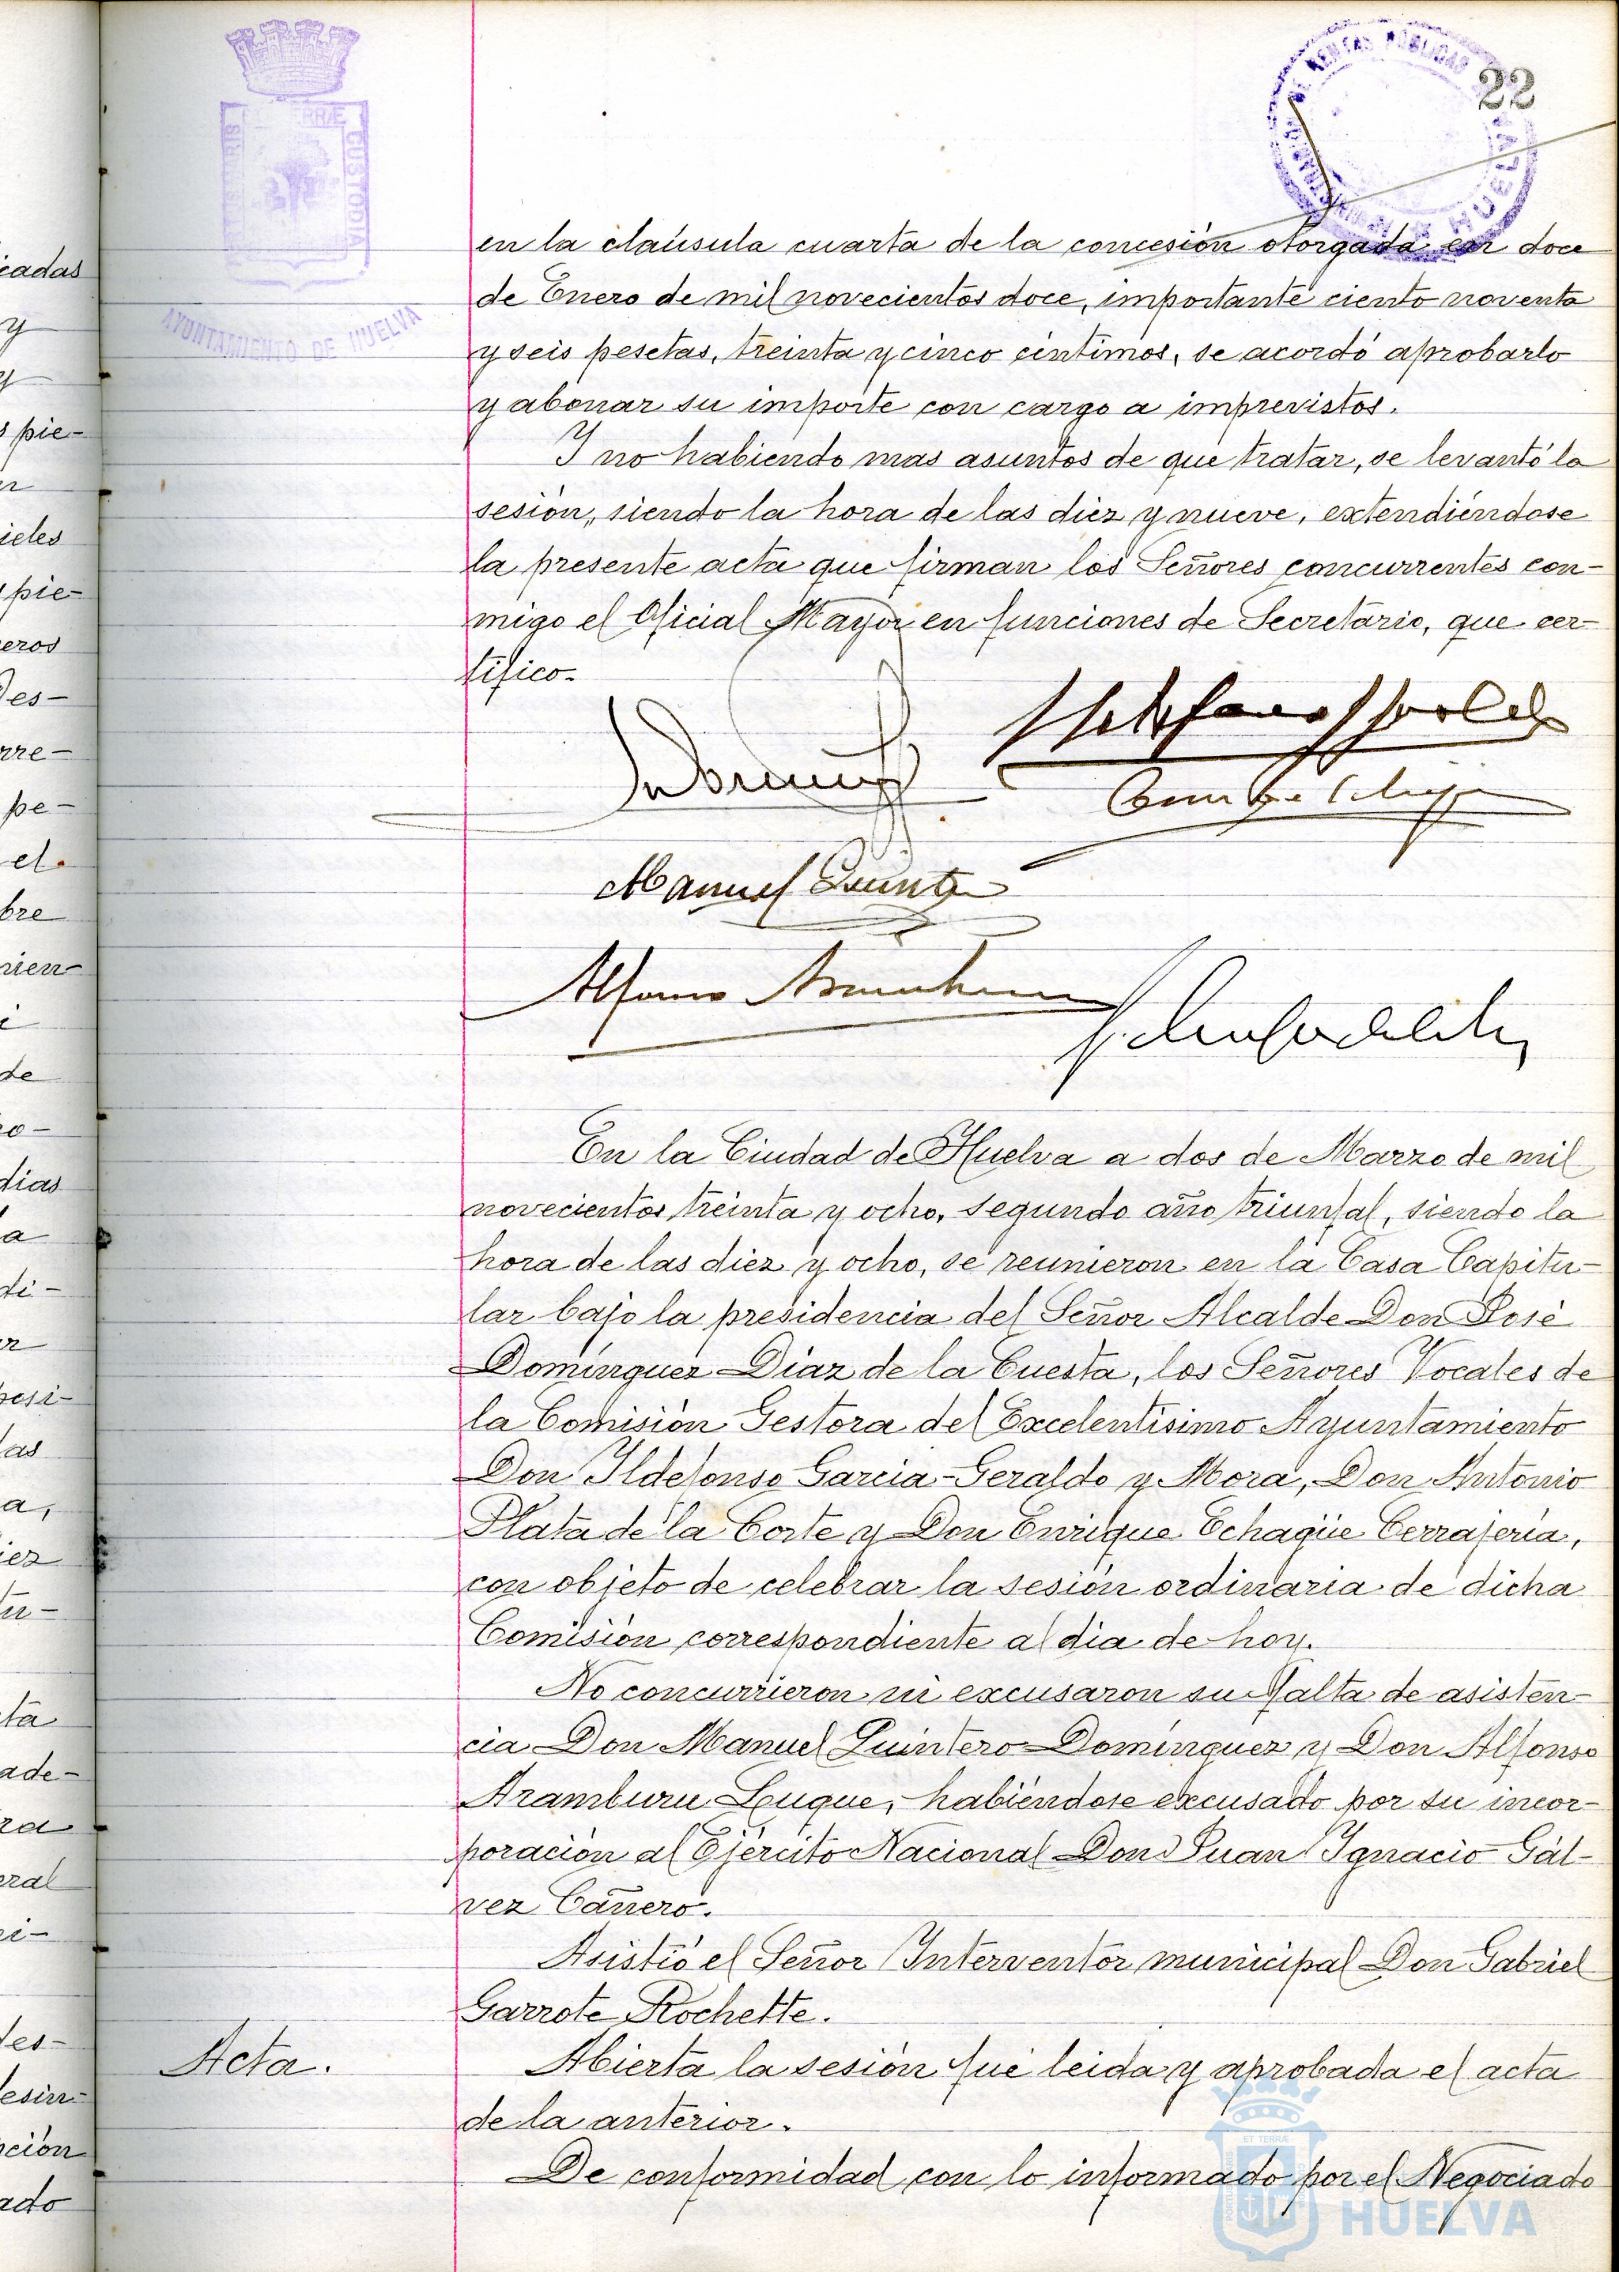 22
AYUNTAMIENTO DE HUELVA
CUSTODIA
RENTAS PUBLICAS
HUELVA
en la claúsula cuarta de la concesión otorgada con doce
de Enero de mil novecientos doce, importante ciento noventa
y seis pesetas, treinta y cinco céntimos, se acordó aprobarlo
y abonar su importe con cargo a imprevistos.
Y no habiendo mas asuntos de que tratar, se levantó la
sesión, siendo la hora de las diez y nueve, extendiéndose
la presente acta que firman los Señores concurrentes con-
migo el Oficial Mayor en funciones de Secretario, que cer-
tifico-
Manuel Quintero
Alfonso Aramburu
En la Ciudad de Huelva a dos de Marzo de mil
novecientos treinta y ocho, segundo año triunfal, siendo la
hora de las diez y ocho, se reunieron en la Casa Capitu-
lar bajo la presidencia del Señor Alcalde Don José
Domínguez Díaz de la Cuesta, los Señores Vocales de
la Comisión Gestora del Excelentísimo Ayuntamiento
Don Ildefonso García-Geraldo y Mora, Don Antonio
Plata de la Corte y Don Enrique Echagüe Cerrajería,
con objeto de celebrar la sesión ordinaria de dicha
Comisión correspondiente al dia de hoy.
No concurrieron ni excusaron su falta de asisten-
cia Don Manuel Quintero Domínguez y Don Alfonso
Aramburu Luque, habiéndose excusado por su incor-
poración al Ejército Nacional Don Juan Ignacio Gál-
vez Cañero.
Asistió el Señor Interventor municipal Don Gabriel
Garrote Rochette.
Acta.
Abierta la sesión fué leida y aprobada el acta
de la anterior.
De conformidad con lo informado por el Negociado
HUELVA